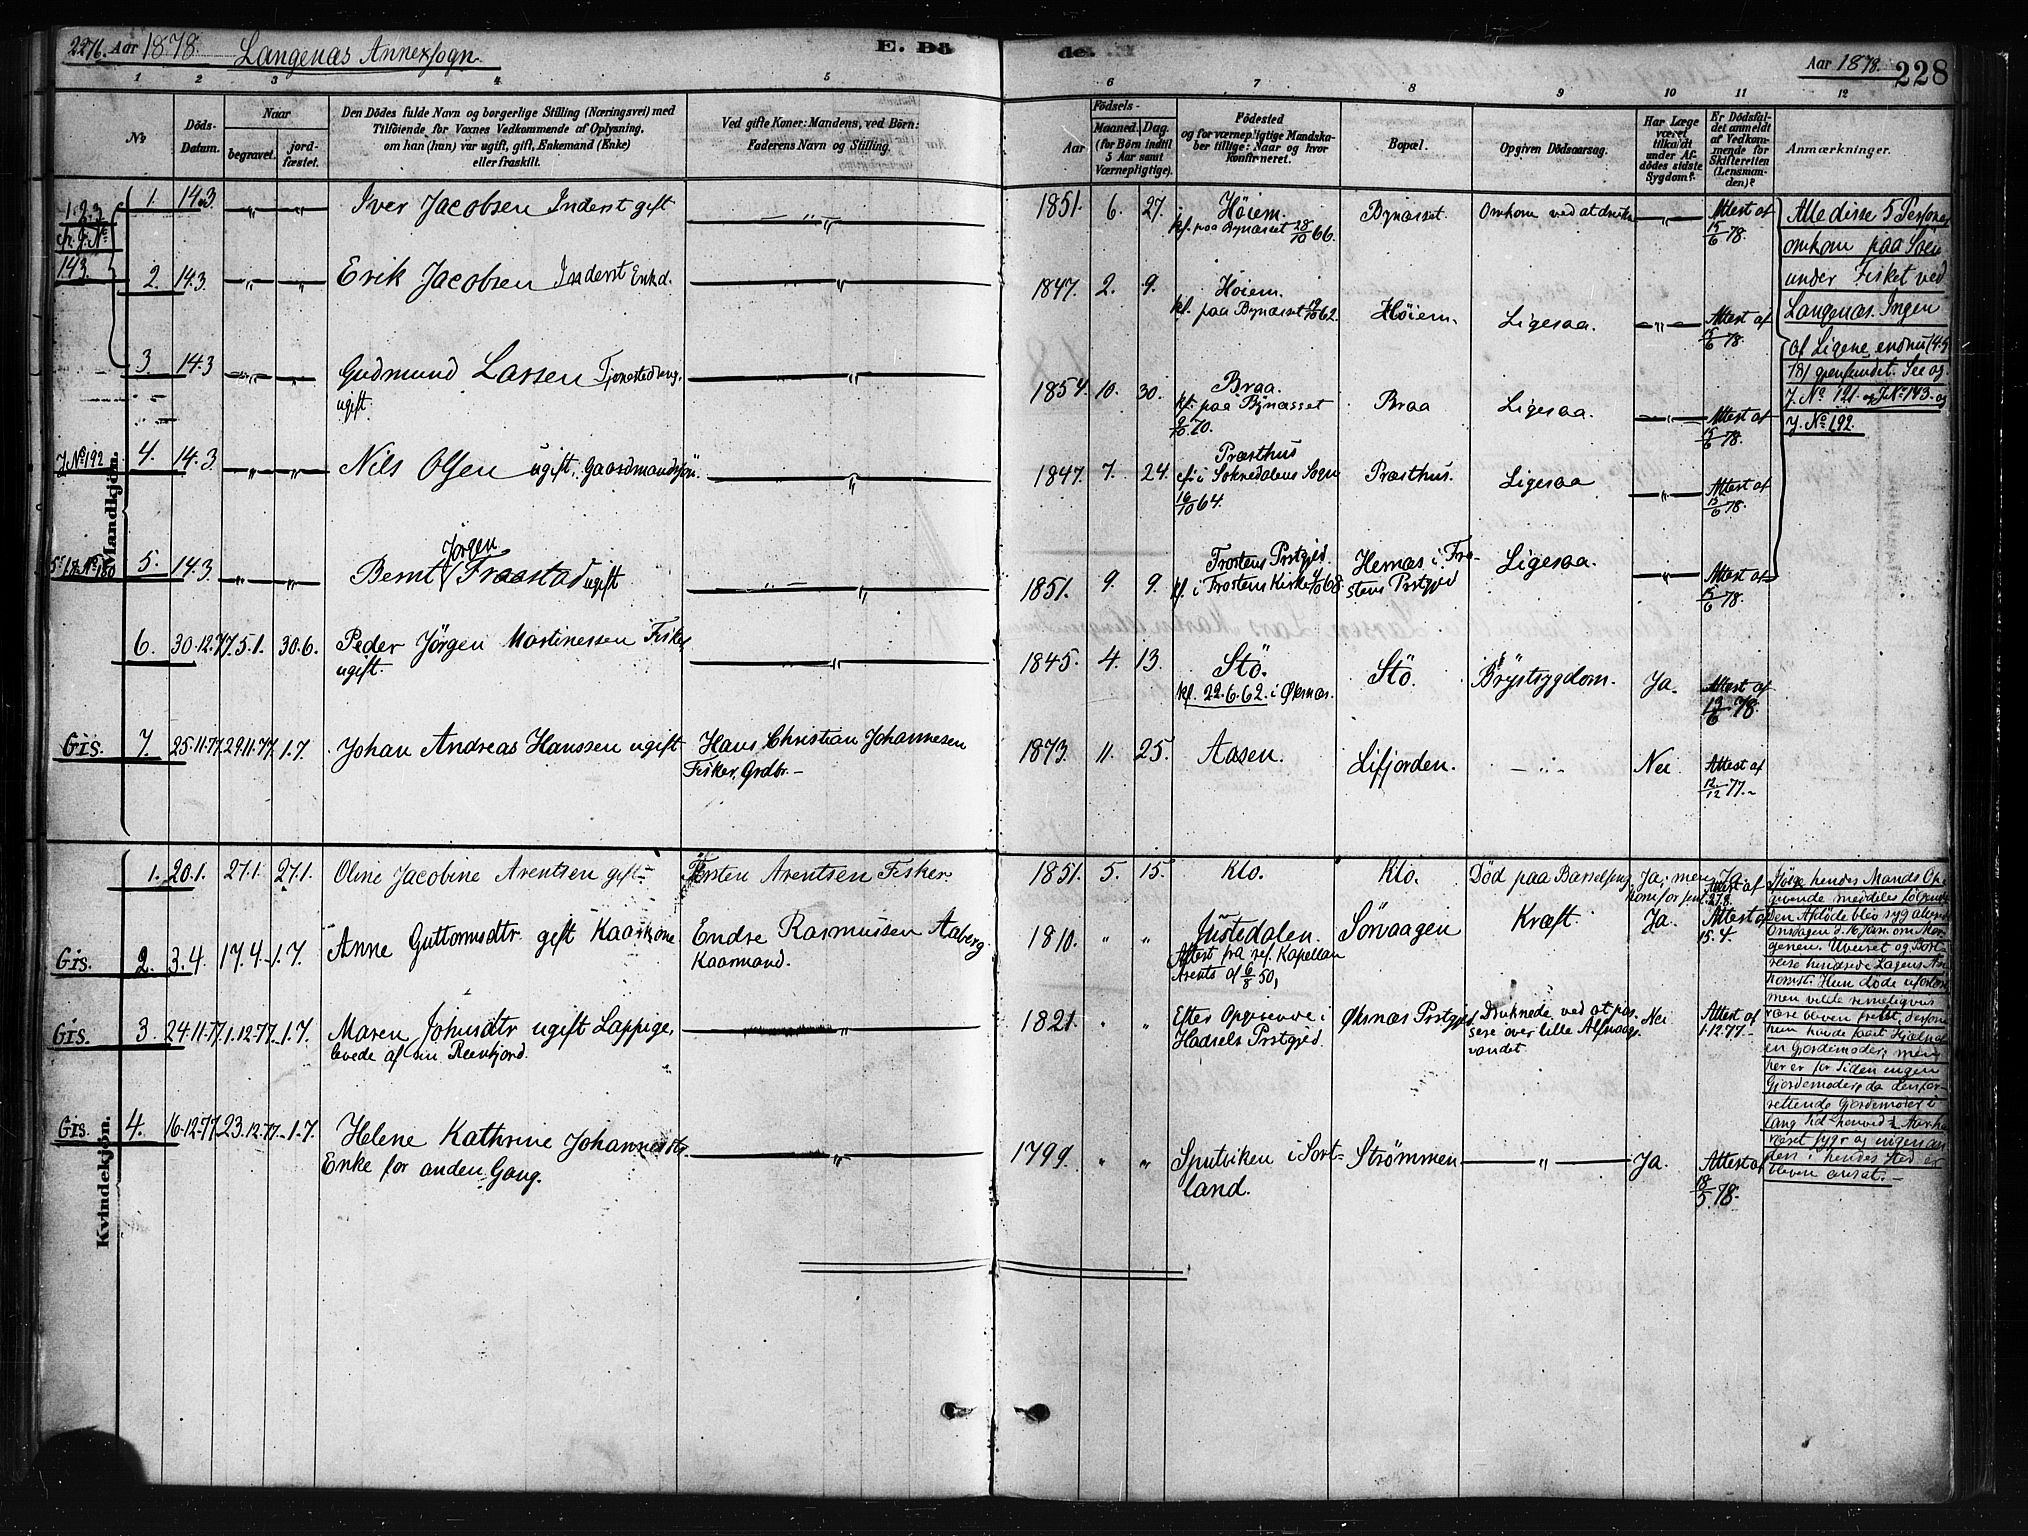 227b. Aar 1878. Langenæs Annexsogn.
E. Dö
de.
Aar 1878.
228
1 2 3 4 5 6 7 8 9 10 11 12
No
Döds-
Datum.
Naar
begravet.
jord-
fæstet.
Den Dödes fulde Navn og borgerlige Stilling (Næringsvei) med
Tilföiende, for Voxnes Vedkommende af Oplysning,
om han (hun) var ugift, gift, Enkemand (Enke)
eller fraskilt.
Ved gifte Koner: Mandens, ved Börn:
Faderens Navn og Stilling.
Födsels-
Aar
Maaned. Dag.
(for Börn indtil
5 Aar samt
Værnepligtige).
Födested
og for værnepligtige Mandska-
ber tillige: Naar og hvor
konfirmeret.
Bopæl.
Opgiven Dödsaarsag.
Har Læge
været
tilkaldt
under Af-
dödes sidste
Sygdom?
Er Dödsfal-
det anmeldt
af Vedkom-
mende for
Skifteretten
(Lensman-
den)?
Anmærkninger.
Mandkjön.
1. 2. 3
143.
1. 14.3. " " Iver Jacobsen Inderst gift — " — 1851. 6. 27. Höiem. Bynæsset. Omkom ved at drukne — " — Attest af
kf. paa Bynæsset 28/10 66. 15/6 78.
2. 14.3. " " Erik Jacobsen Inderst Enkd. — " — 1847. 2. 9. Höiem. Höiem. Ligesaa. — " — Attest af
kf. paa Bynæsset 62. 15/6 78.
3. 14.3 " " Gudmund Larsen — " — 1854. 10. 30. Braa. Braa Ligesaa. — " — Attest af
ugift. kf. paa Bynæsset 15/6 78.
70.
J.No 192 4. 14.3 " " Nils Olsen ugift, Gaardmandssön. — " — 1847. 7. 24. Præsthus Præsthus. Ligesaa — " — Attest af
i Soknedalens Sogn 15/6 78.
16/10 64.
5. 14.3. " " Bernt Jörgen Fraastad ugift — " — 1851. 9. 9. Frostens Prstgjd. Hernæs i Fro- Ligesaa. — " — Attest af
kf. i Frostens Kirke 68 stens Prstgjd 15/6 78.
6. 30.12.77. 5.1. 30.6. Peder Jörgen Martinessen Fisker — " — 1845. 4. 13. Stö. Stö. Brystsygdom. Ja. Attest af
ugift. kf. 22.6.62. i Öksnæs. 13/6 78.
Gis. 7. 25.11.77. 29.11.77. 1.7. Johan Andreas Hanssen ugift Hans Christian Johannesen 1873. 11. 25. Aasen. Lifjorden. — " — Nei Attest af
Fisker, Grdbr. — 12/12 77. —
Alle disse 5 Personer
omkom paa Söen
under Fisket ved
Langenæs. Ingen
af Ligene endnu (4.5
78) gjenfundet. See og
J. No 121 og J.No 143. og
J. No 192.
Kvindekjön.
1. 20.1. 27.1. 27.1. Oline Jacobine Arentsen gift — Torsten Arentsen Fisker. 1851. 5. 15. Klo. Klo. Död paa Barselseng Ja; men Ja.
kom for sent. Attest af
Gis. 2. 3.4. 17.4. 1.7. Anne Guttormsdtr. gift Kaarkone Endre Rasmussen Aaberg 1810. " " Justedalen. Sörvaagen Kræft. Ja. Attest af
Kaarmand. Attest fra res. Kapellan 15.4.
Arentz af 6/8 50,
Gis. 3. 24.11.77. 1.12.77. 1.7. Maren Johnsdtr ugift Lappige, — " — 1821. " " Efter Opgivende i Öksnæs Prstgjd Druknede ved at pas- Nei Attest af
levede af sin Reenhjord. Hadsels Prstgjed. sere over lille Alfsvaag- 1.12.77. —
vandet.
Gis. 4. 16.12.77. 23.12.77. 1.7. Helene Kathrine Johannesdtr. — " — 1799. " " Sputviken i Sort- Strömmen — " — Ja. Attest af
Enke for anden Gang. land. 18/5 78.
hendes Mands Op-
givende meddeles følgende:
Den Afdöde blev syg
Onsdagen d. 16 Jan. om Mor-
genen. Uveiret og Bort-
reise hindrede Lægens An-
komst. Hun döde uforlöst
men vilde rimeligvis
være bleven frelst, dersom
hun havde faaet Hjælp af
en Gjordemoder; men
her er for Tiden ingen
Gjordemoder, da den for-
rettende Gjordemoder i
lang Tid
været syg og ingen an-
den i hendes Sted er
bleven ansat. —